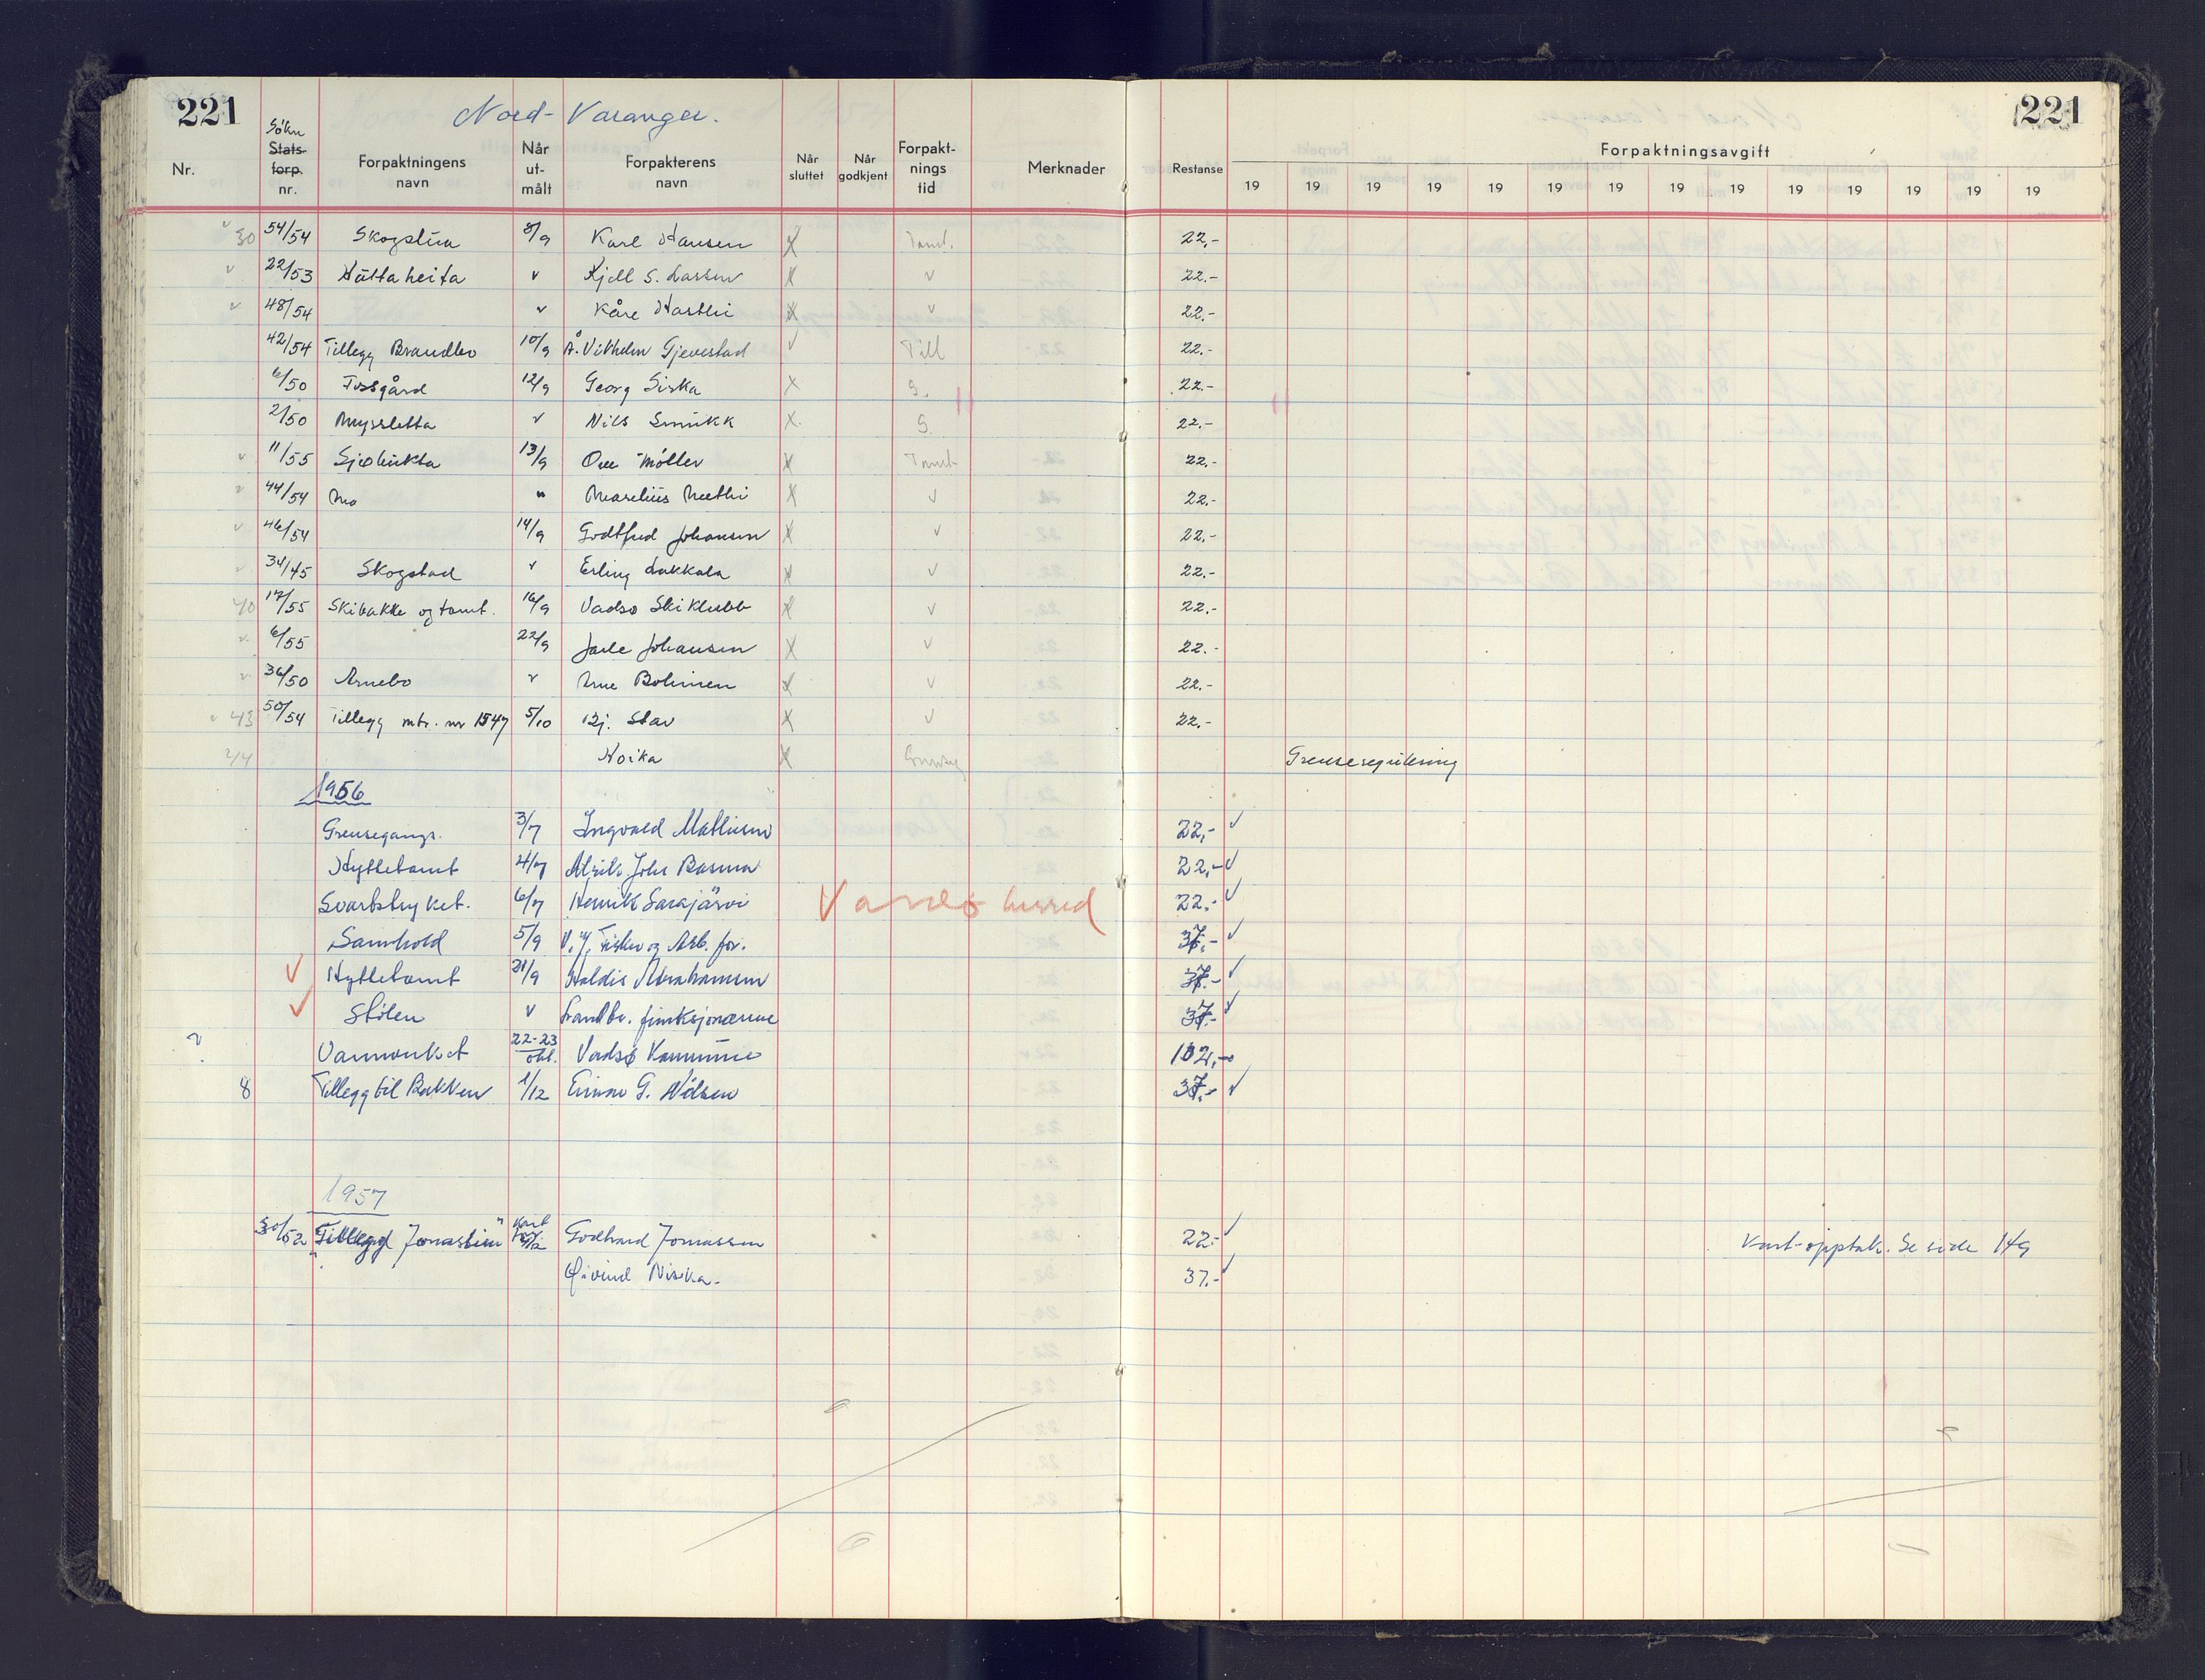 221 Nord-Varanger. 221
Nr. Søkn Stats- forp. nr. Forpaktningens navn Når ut- målt Forpakterens navn Når sluttet Når godkjent Forpakt- nings tid Merknader Restanse Forpaktningsavgift
19 19 19 19 19 19 19 19 19 19 19 19 19 19
30 54/54 Skogstua 8/9 Karl Hansen X Tomt. 22,-
v 22/53 Hüttaheita v Kjell S. Larsen X v 22.-
v 48/54 v Kåre Hartli X v 22.-
42/54 Tillegg Brandbo 10/9 A. Vilhelm Gjevestad v Till 22.-
6/50 Fossgård 12/9 Georg Siska X S. 22.-
2/50 Myrsletta v Nils Smukk X. S. 22.-
v 11/55 Sjøbukta 13/9 Ove Møller X Tomt 22.-
v 44/54 Mo " Marelius Mathi X v 22.-
v 46/54 14/9 Godtfred Johansen X v 22.-
34/45 Skogstad v Erling Lakkala X v 22.-
40 17/55 Skibakke og tomt. 16/9 Vadsø Skiklubb X v 22.-
v 6/55 22/9 Jarle Johansen X v 22.-
v 36/50 Arnebo v Arne Bohinen X v 22.-
43 50/54 Tillegg mtr. nr 1547 5/10 Hj. Stav X v 22.-
44 Noika X Grensereg Grenseregulering
1956
Grensegangs. 3/7 Ingvald Mathisen 22,- v
Hyttetomt 4/7 Alrik Johs Basma 22,- v
Svartstryket. 6/7 Henrik Sarajärvi Vadsø herred 22.- v
Samhold 5/9 V.J. Fisker og Arb. for. 37.- v
v Hyttetomt 21/9 Haldis Abrahamsen 37.- v
v Stølen v Landbr. funksjonærene 37.- v
? Vannverket 22-23 okt. Vadsø Kommune 102,-
8 Tillegg til Bakken 1/12 Einar G. Nilsen 37.- v
1957
30/52 Tillegg "Jonaslien" Kart 4/12 Godhard Jonassen 22.- v Kart-opptak. Se side 149
Øivind Niska. 37.- v